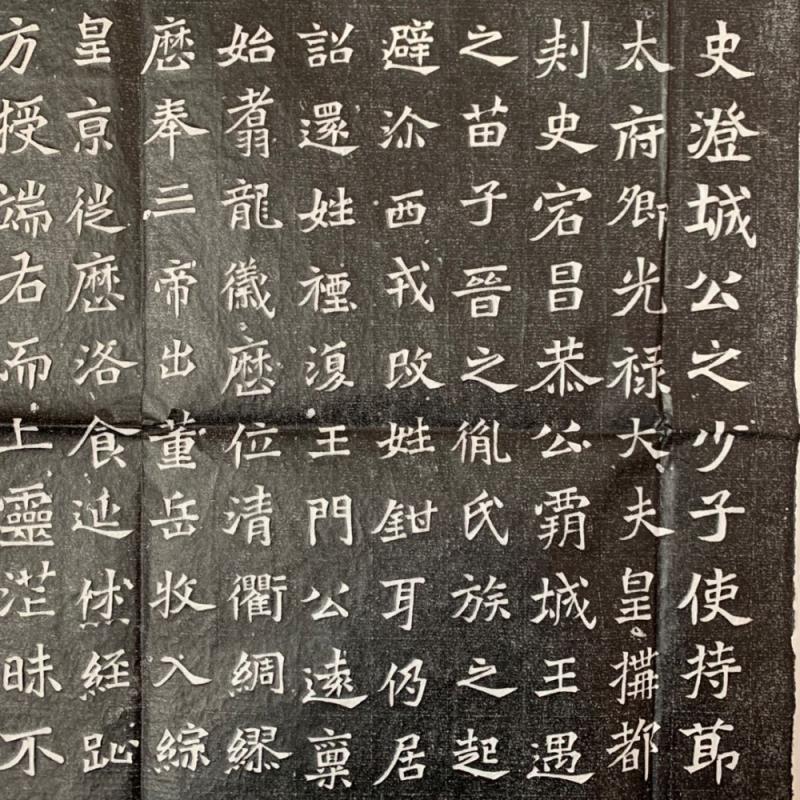 史澄城公之少子使持莭
太府卿光禄大夫皇搆都
刾史宕昌恭公霸城王遇
之苗子晉之胤氏族之起
避沵西戎改姓鉗耳仍居
詔還姓禋復王門公遠稟
始翥龍徽歷位清衢綢繆
歷奉三帝出董岳牧入綜
皇京從歷洛食延恘經趾
方授端右而上靈茫昧不